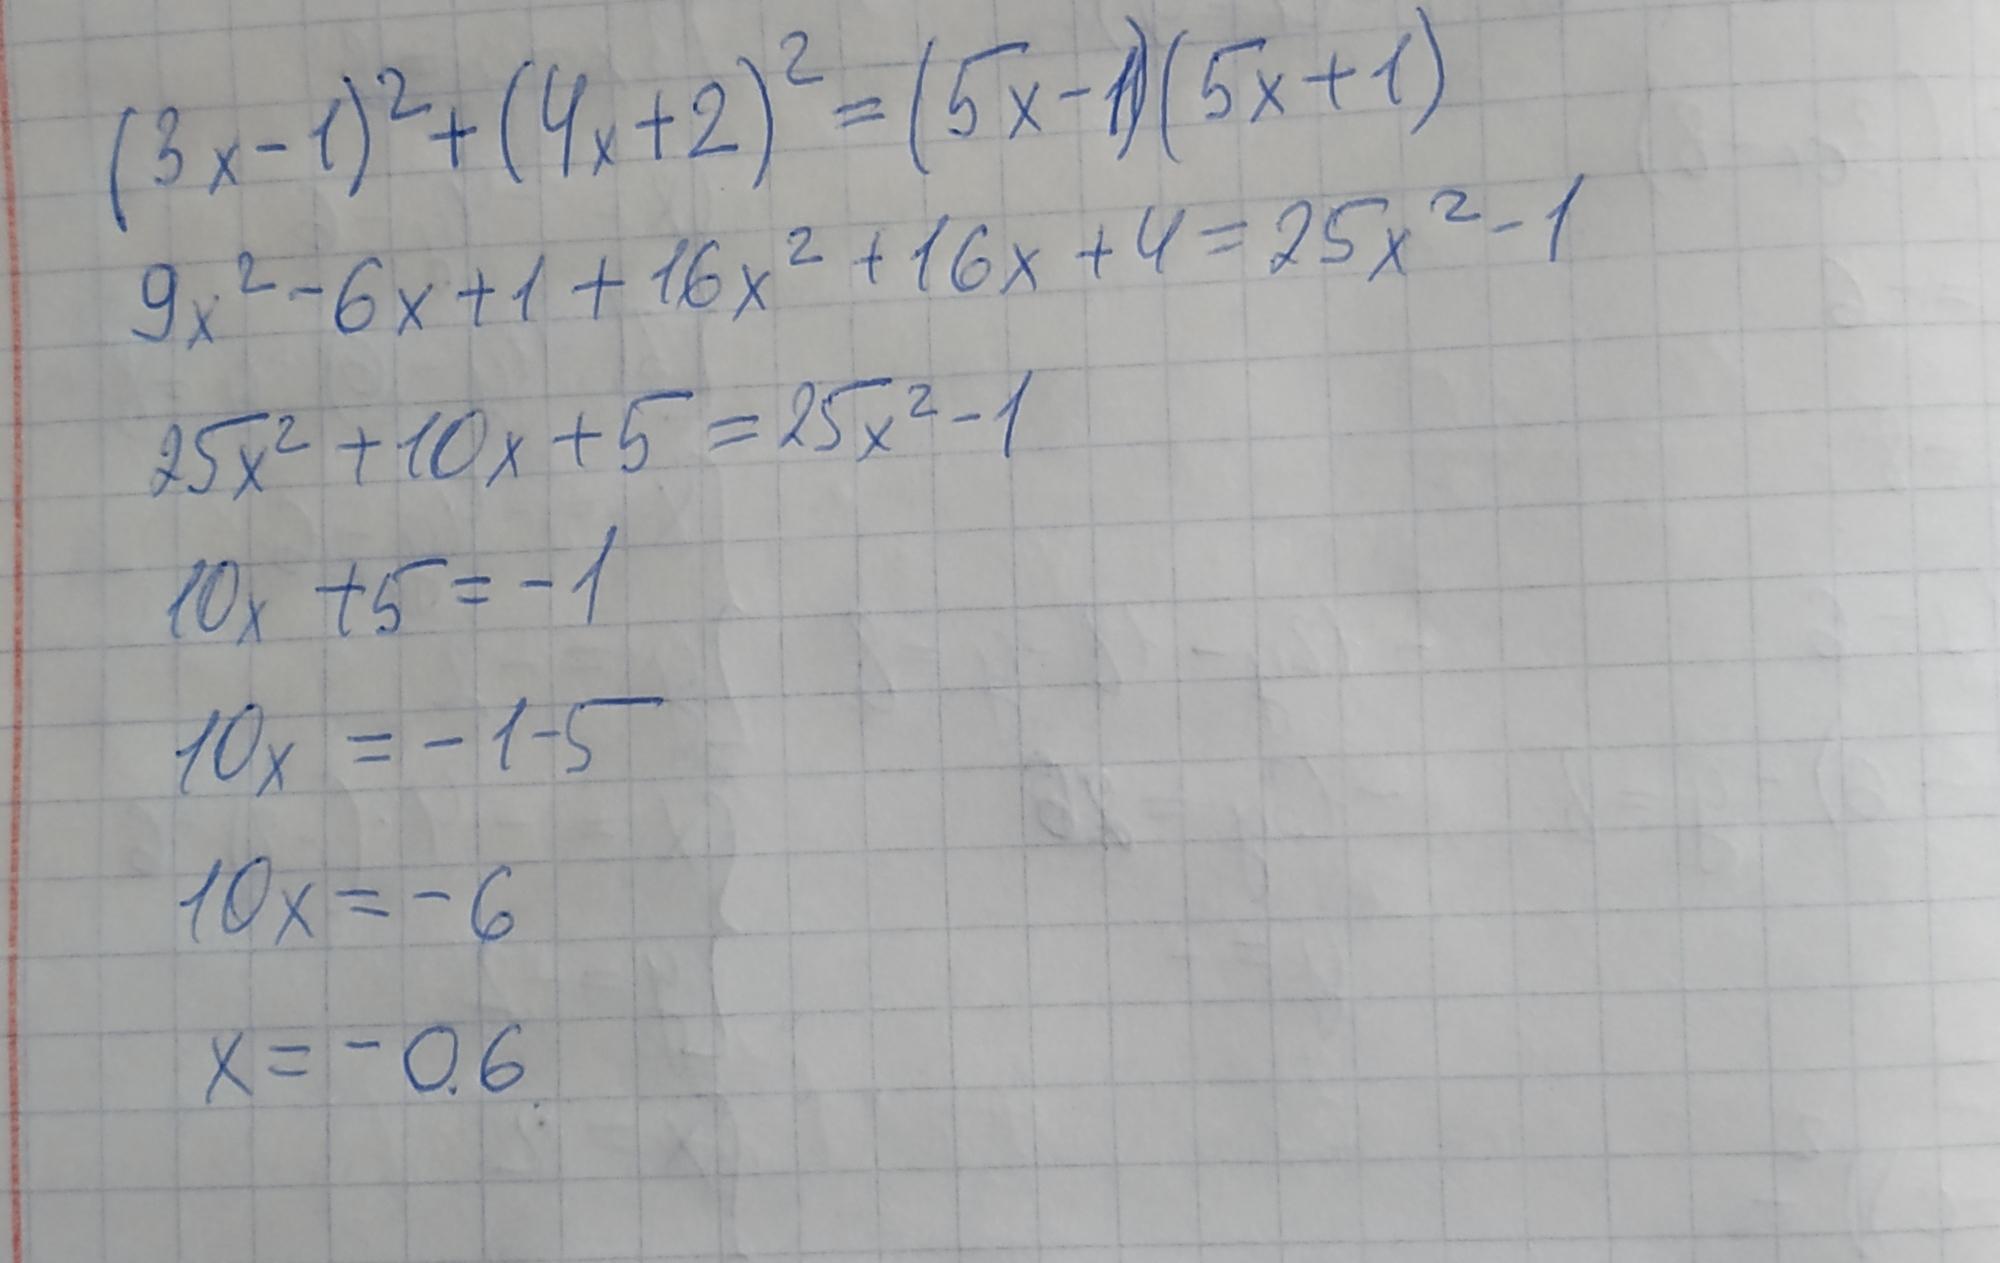 (3x-1)²+(4x+2)²=(5x-1)(5x+1)
9x²-6x+1+16x²+16x+4=25x²-1
25x²+10x+5=25x²-1
10x+5=-1
10x=-1-5
10x=-6
x=-0.6